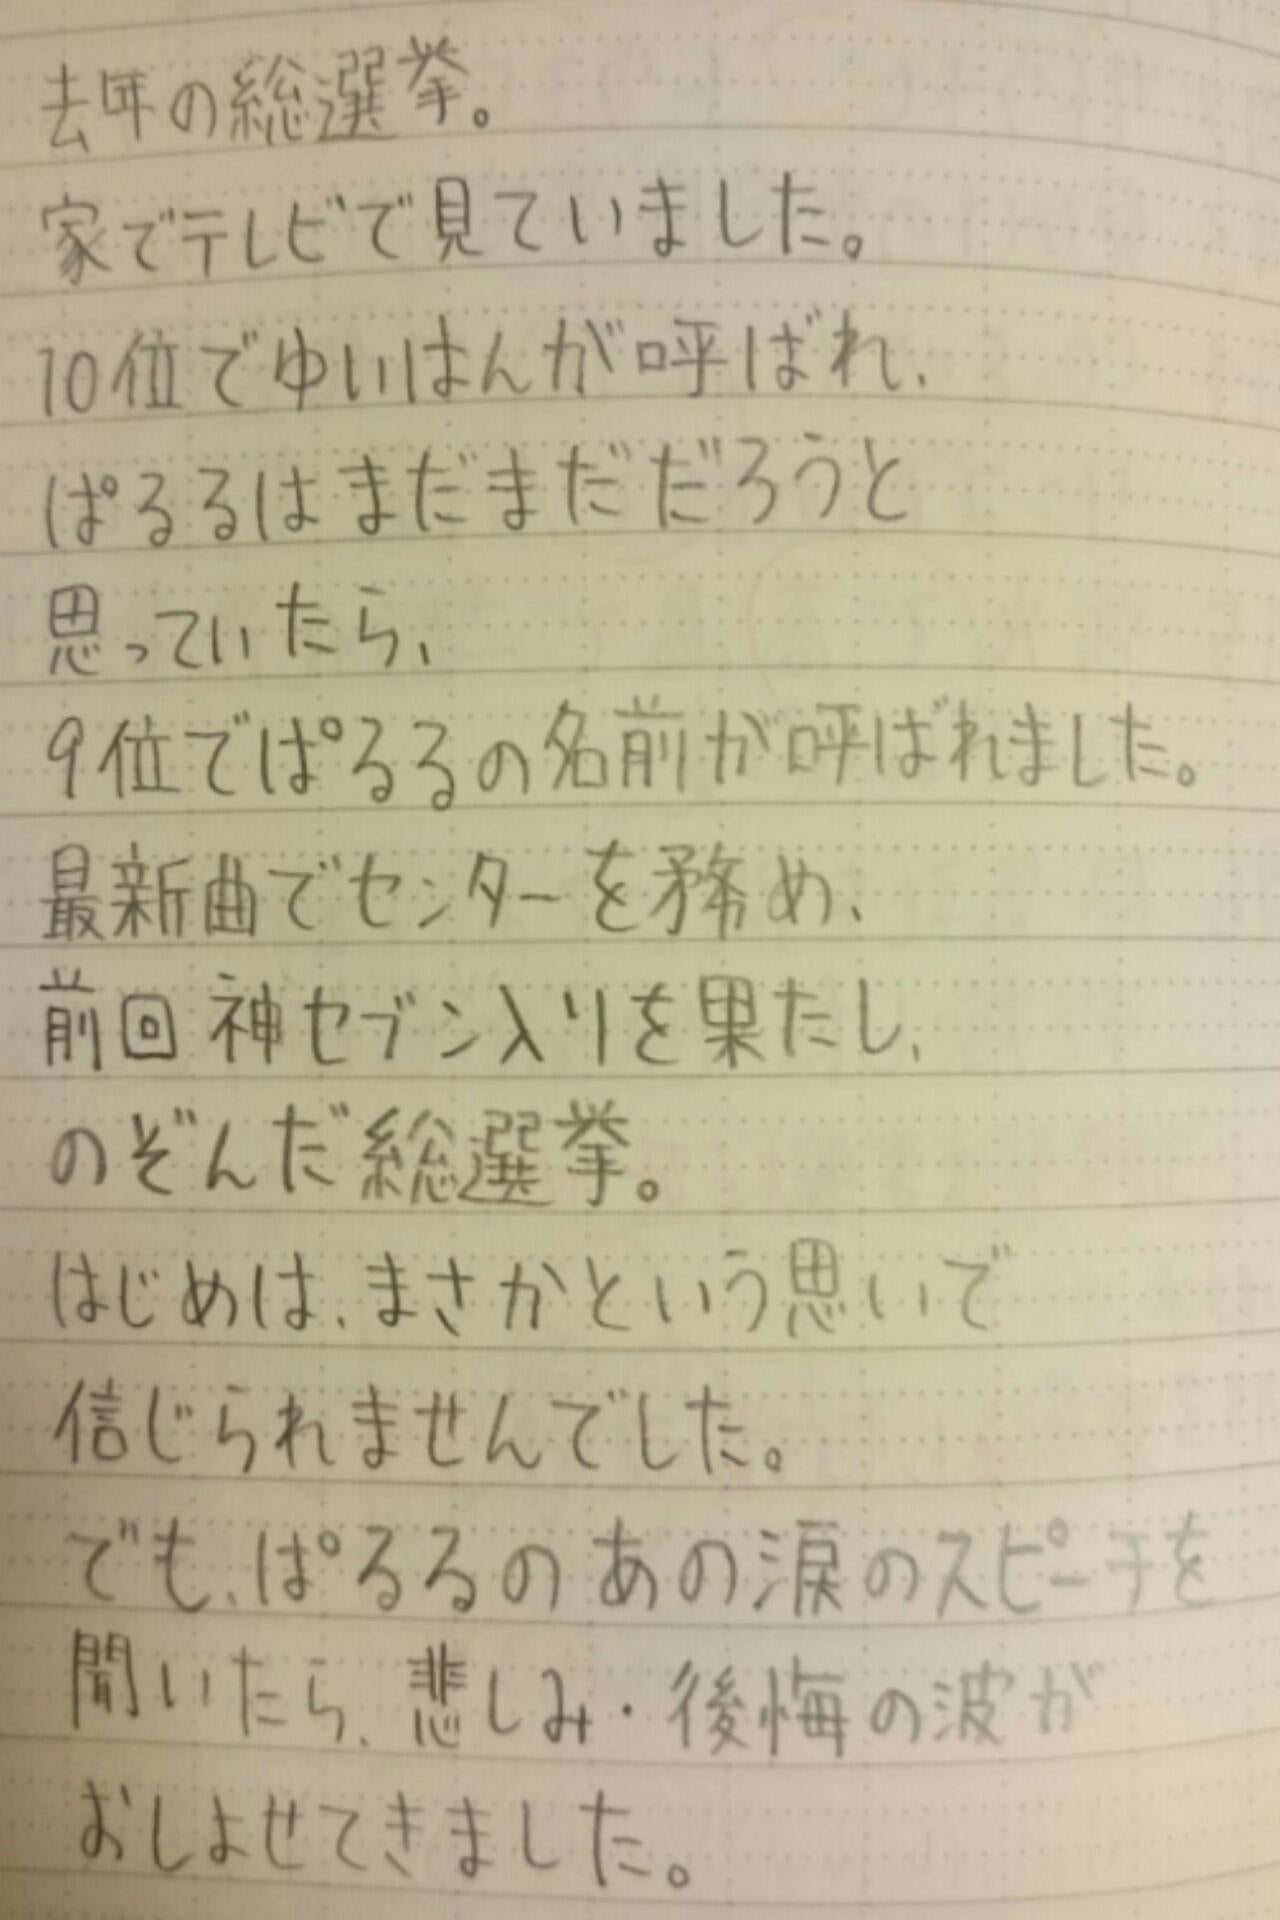 去年の総選挙。
家でテレビで見ていました。
10位でゆいはんが呼ばれ、
ぱるるはまだまだだろうと
思っていたら、
9位でぱるるの名前が呼ばれました。
最新曲でセンターを務め、
前回神セブン入りを果たし、
のぞんだ総選挙。
はじめは、まさかという思いで
信じられませんでした。
でも、ぱるるのあの涙のスピーチを
聞いたら、悲しみ・後悔の波が
おしよせてきました。